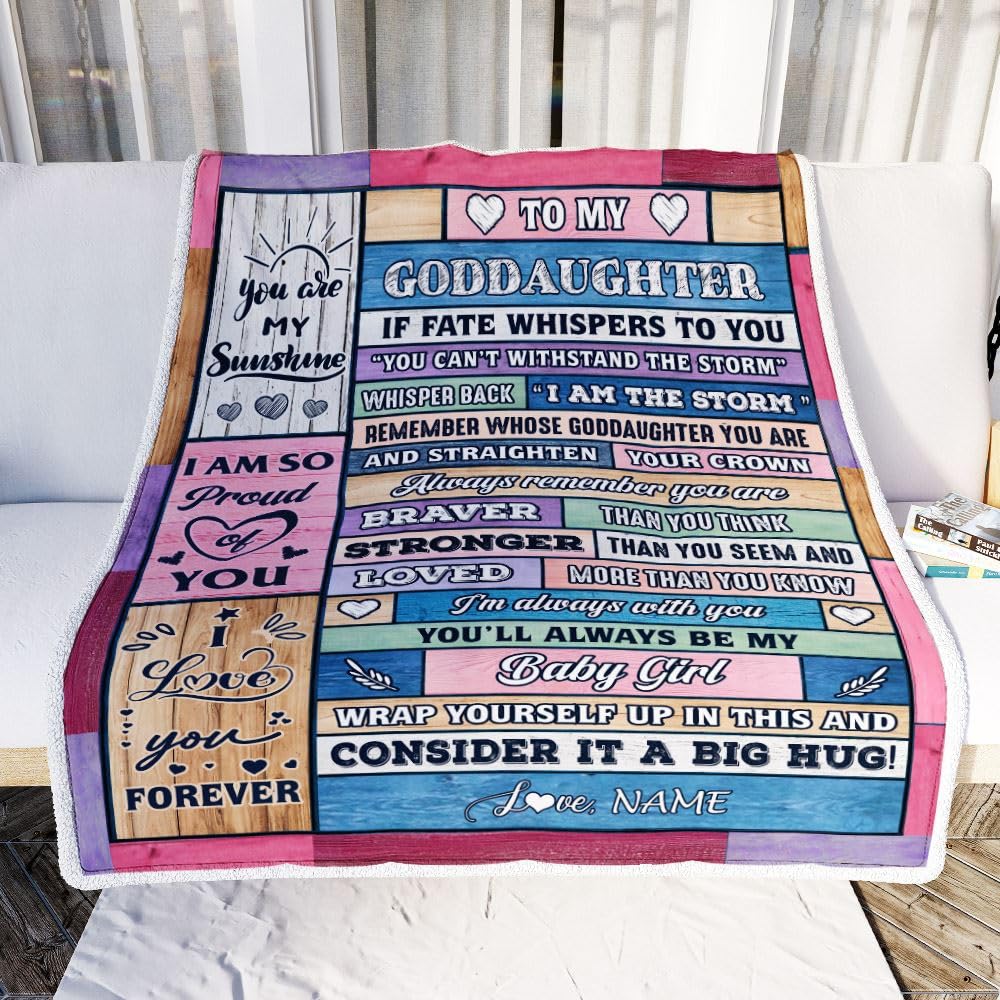 You are
MY
Sunshine
I AM SO
Proud
of
YOU
I
Love
you
FOREVER
TO MY
GODDAUGHTER
IF FATE WHISPERS TO YOU
"YOU CAN'T WITHSTAND THE STORM"
WHISPER BACK "I AM THE STORM"
REMEMBER WHOSE GODDAUGHTER YOU ARE
AND STRAIGHTEN YOUR CROWN
Always remember you are
BRAVER THAN YOU THINK
STRONGER THAN YOU SEEM AND
LOVED MORE THAN YOU KNOW
I'm always with you
YOU'LL ALWAYS BE MY
Baby Girl
WRAP YOURSELF UP IN THIS AND
CONSIDER IT A BIG HUG!
Love, NAME
The
Calling